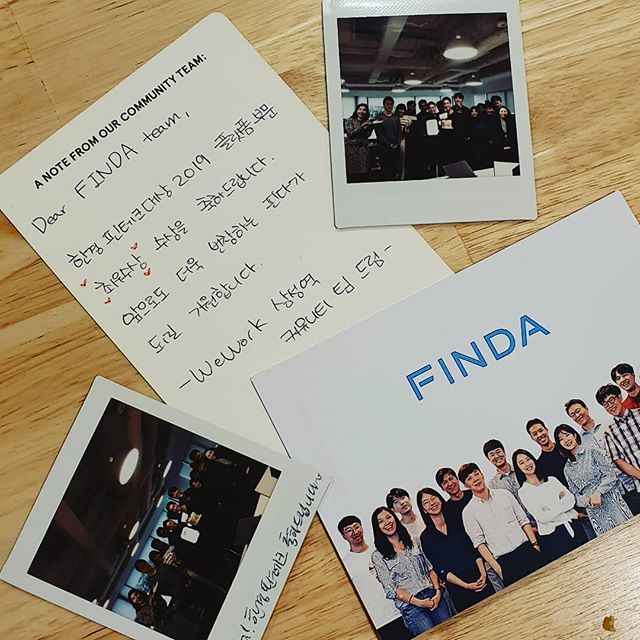 A NOTE FROM OUR COMMUNITY TEAM:
Dear FINDA team,
한경 핀테크대상 2019 플랫폼 부문
최우수상 수상을 축하드립니다.
앞으로도 더욱 번창하는 핀다가
되길 기원합니다.
-WeWork 삼성역
커뮤니티 팀 드림-
FINDA
축하드립니다